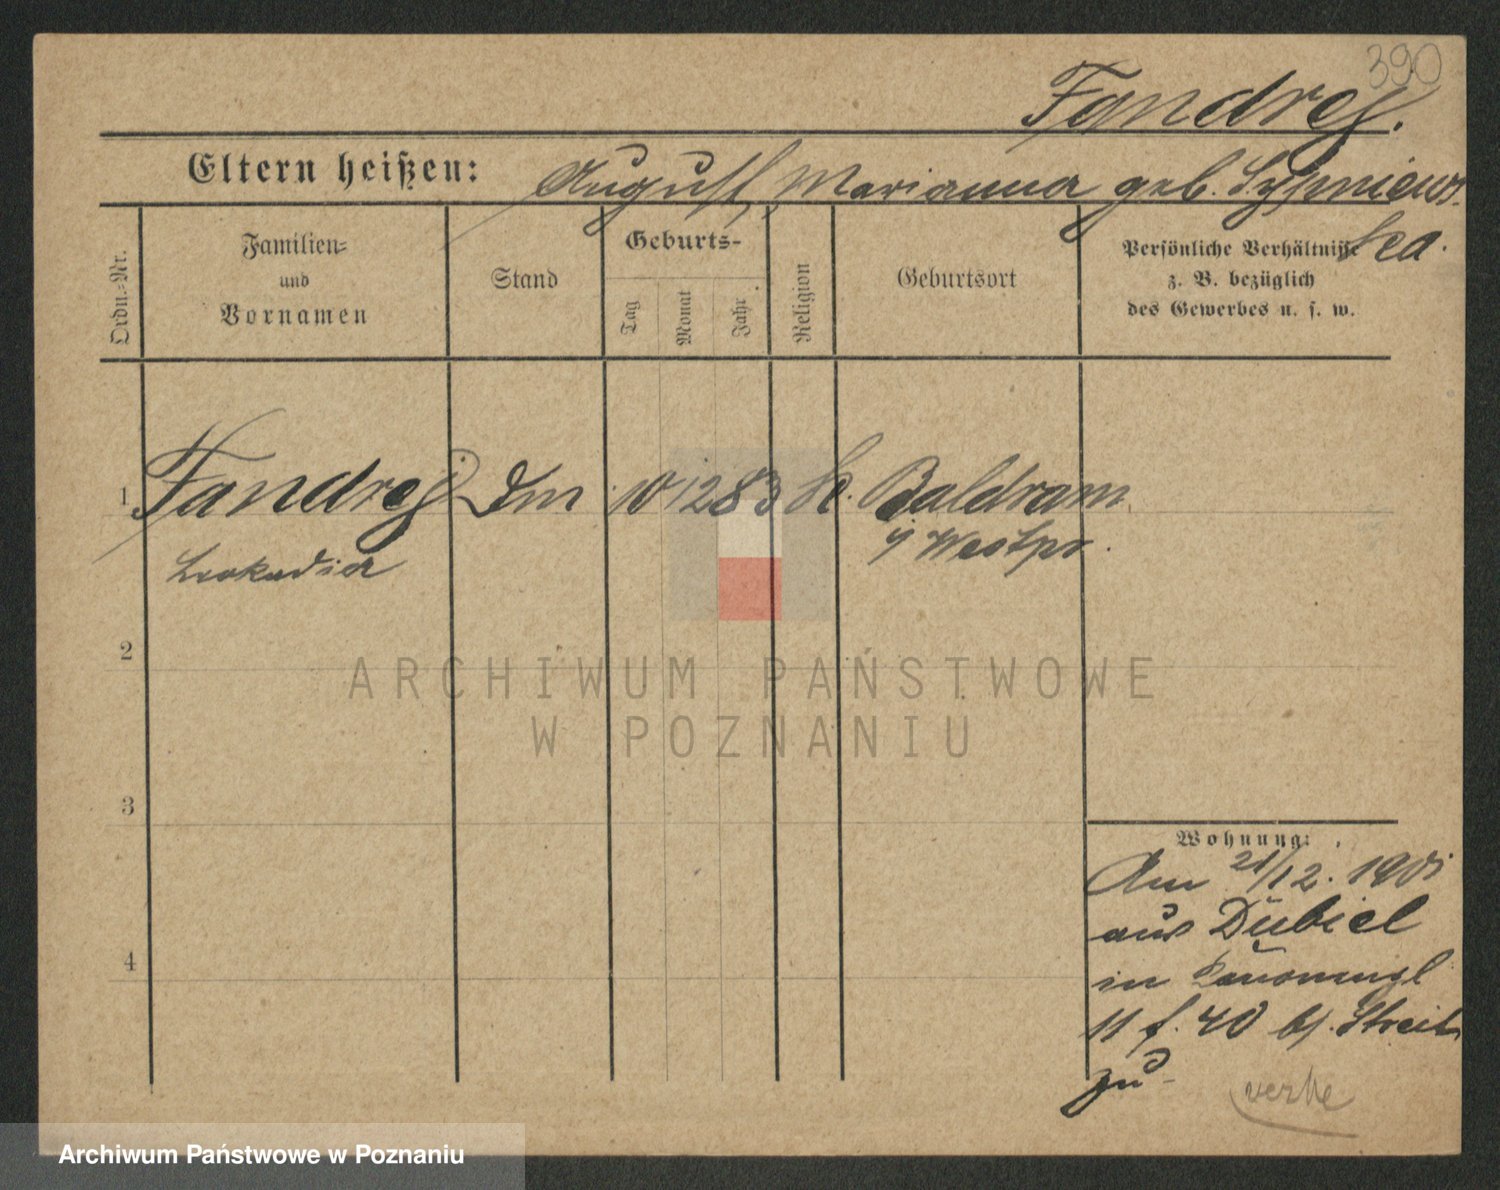 390
Fandrej.
Eltern heißen: August, Marianna geb. Sypniews-
ka.
Ordn.-Nr.
Familien-
und
Vornamen
Stand
Geburts-
Tag
Monat
Jahr
Religion
Geburtsort
Persönliche Verhältnisse
z. B. bezüglich
des Gewerbes u. s. w.
1 Fandrej Dm 10 12 83 k. Baldram
Leokadia
i/ Westpr.
2
3
4
Wohnung:
Am 21/12. 1901
aus Dubiel
in
11 f. 40 b/. Streit
zu
ARCHIWUM PAŃSTWOWE
W POZNANIU
Archiwum Państwowe w Poznaniu